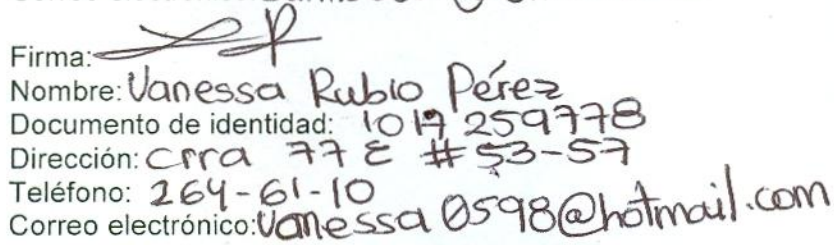 Firma:
Nombre: Vanessa Rubio Pérez
Documento de identidad: 1017259778
Dirección: Crra 77 E # 53-57
Teléfono: 264-61-10
Correo electrónico: Vanessa0598@hotmail.com